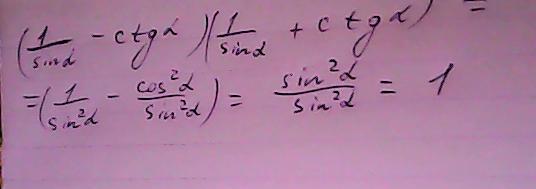 (1/sinα - ctgα)(1/sinα + ctgα) =
=(1/sin²α - cos²α/sin²α) = sin²α/sin²α = 1